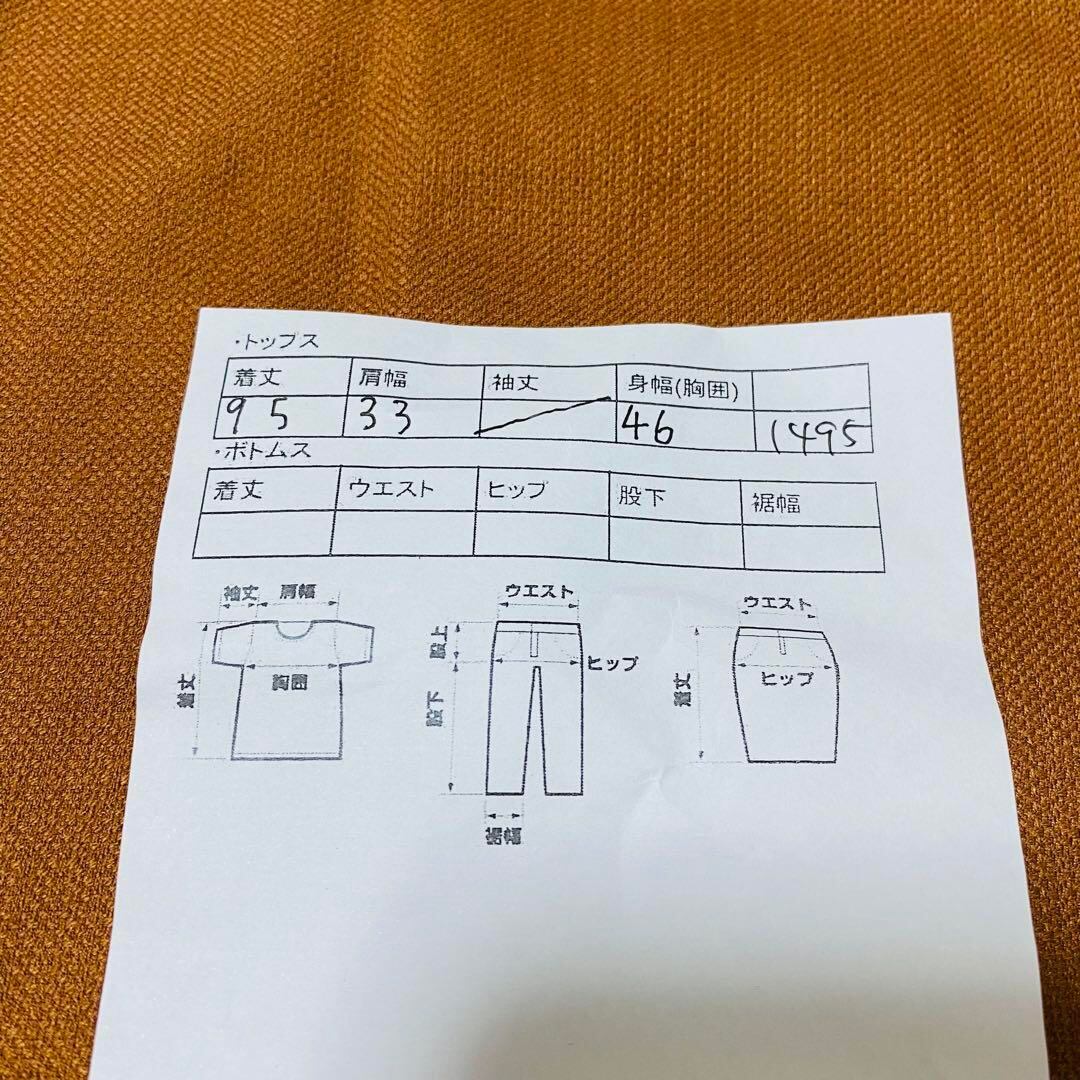 ・トップス
着丈 肩幅 袖丈 身幅(胸囲)
95 33 46 1495
・ボトムス
着丈 ウエスト ヒップ 股下 裾幅
袖丈 肩幅
着丈
胸囲
ウエスト
股上
ヒップ
股下
裾幅
ウエスト
着丈
ヒップ